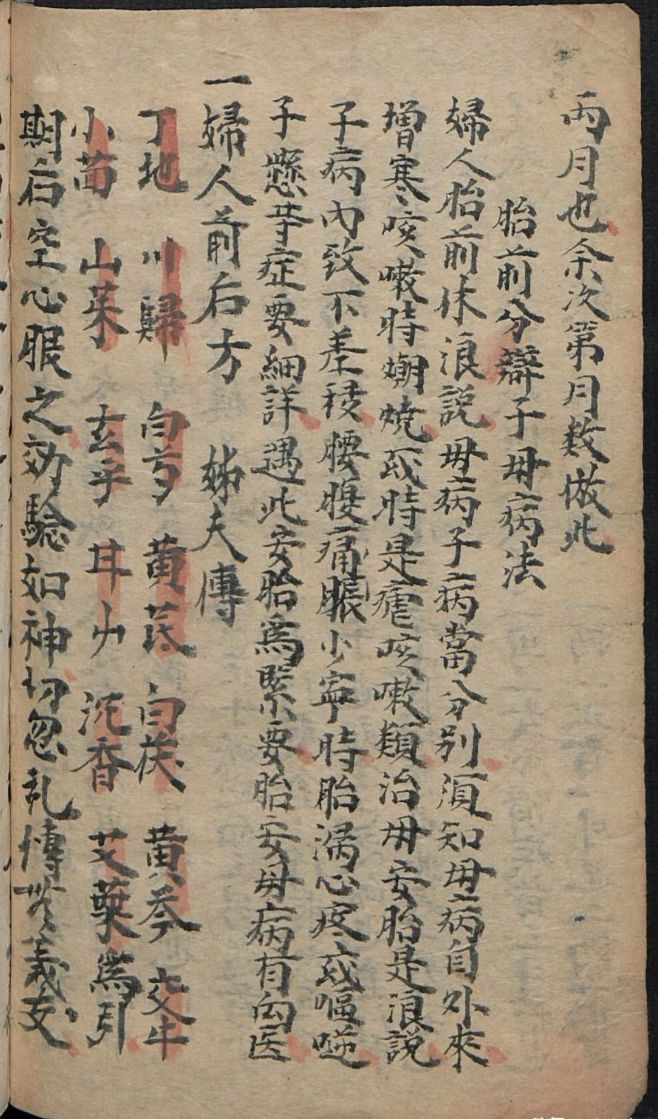 两月也余次第月数倣此
胎前分辯子母病法
婦人胎前休浪説母病子病當分别須知母病自外來
增寒咳嗽時潮燒或時是瘧咳嗽類治母安胎是浪説
子病内致不差移腰腹痛脹少寧時胎漏心疼或嘔逆
子懸等症要細詳遇此安胎爲緊要胎安母病自向医
一婦人前后方 姊夫傳
丁地 川歸 白芍 黄芪 白茯 黄芩 交牛
小茴 山茱 玄乎 甘草 沉香 艾葉爲引
期后空心服之効驗如神切忽乱傳 義友